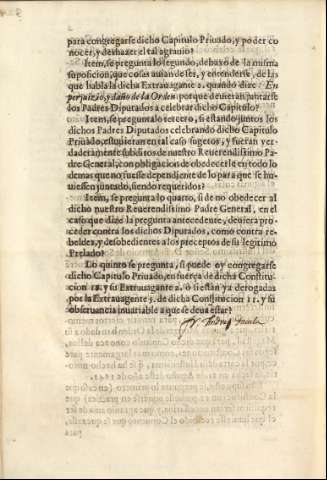 para congregarse dicho Capitulo Priuado, y poder co
nocer, y deshazer el tal agrauio?
Item, se pregunta lo segundo, debaxo de la misma
suposicion, que cosas auian de ser, y entenderse, de las
que habla la dicha Extrauagante 2. quando dize: En
perjuizio, y daño de la Orden porque deuieran juntarse
dos Padres Diputados a celebrar dicho Capitulo?
Item, se pregunta lo tercero, si estando juntos los
dichos Padres Diputados celebrando dicho Capitulo
Priuado, estuuieran en tal caso sugetos, y fueran ver
daderamente subditos de nuestro Reuerendissimo Pa
dre General, con obligacion de obedecerle en todo lo
demas que no fuesse dependiente de lo para que se hu
uiessen juntado, siendo requeridos?
Item, se pregunta lo quarto, si de no obedecer al
dicho nuestro Reuerendissimo Padre General, en el
caso que dize la pregunta antecedente, deuiera pro
ceder contra los dichos Diputados, como contra re
beldes, y desobedientes a los preceptos de su legitimo
Prelado?
Lo quinto se pregunta, si puede oy congregarse
dicho Capitulo Priuado, en fuerça de dicha Constitu
cion 18. y su Extrauagante 2. ò si estàn ya derogadas
por la Extrauagente 3. de dicha Constitucion 11. y su
obseruancia inuariable a que se deua estar?